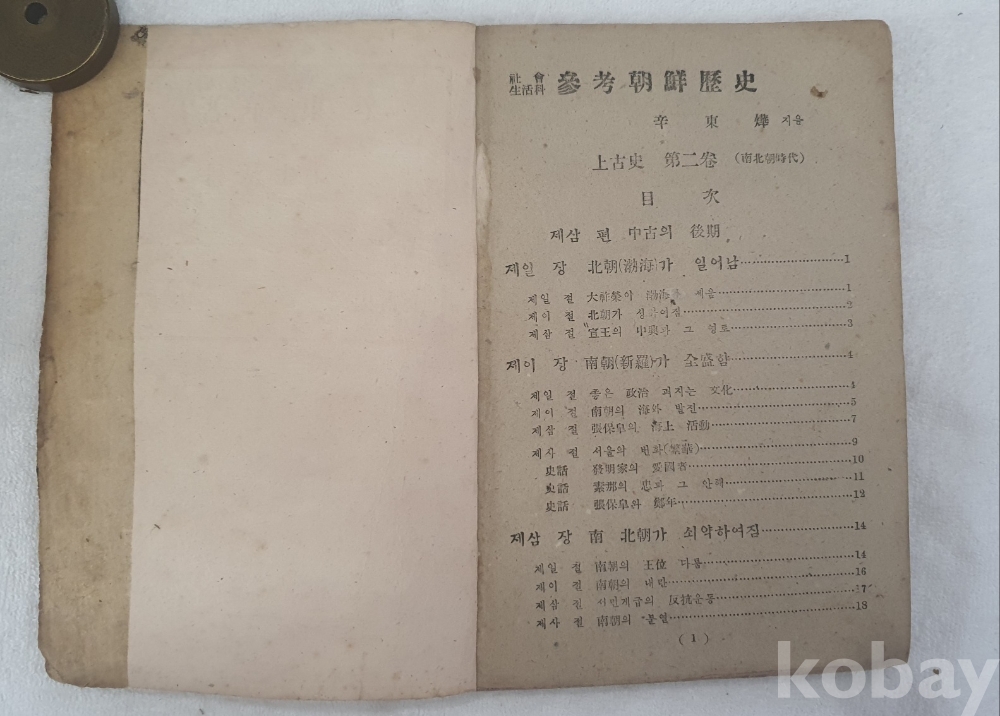 社會
生活科 參考朝鮮歷史
辛 東 燁 지음
上古史 第二卷 (南北朝時代)
目 次
제삼 편 中古의 後期
제일 장 北朝(渤海)가 일어남 1
제일 절 大祚榮이 渤海를 세움 1
제이 절 北朝가 2
제삼 절 宣王의 中興과 그 3
제이 장 南朝(新羅)가 全盛함 4
제일 절 좋은 政治 퍼지는 文化 4
제이 절 南朝의 海外 발전 5
제삼 절 張保皐의 海上 活動 7
제사 절 서울의 번화(繁華) 9
史話 發明家의 愛國者 10
史話 素那의 忠과 그 안해 11
史話 張保皐와 鄭年 12
제삼 장 南 北朝가 쇠약하여짐 14
제일 절 南朝의 王位 다툼 14
제이 절 南朝의 내란 16
제삼 절 서민계급의 反抗운동 17
제사 절 南朝의 분열 18
( 1 )
kobay